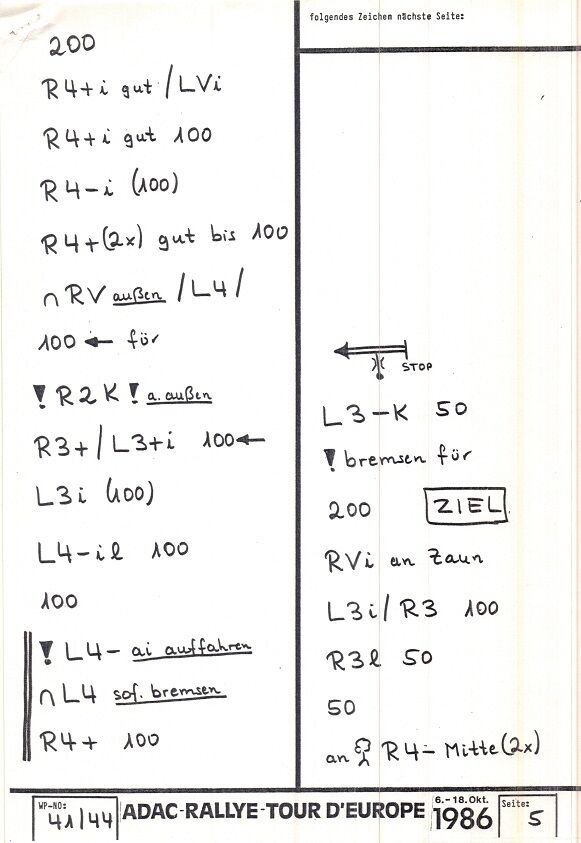 folgendes Zeichen nächste Seite:
200
R4+i gut / LVi
R4+i gut 100
R4-i (100)
R4+(2x) gut bis 100
∩ RV außen / L4 /
100 ← für
! R2K ! a. außen
R3+ / L3+i 100 ←
L3i (100)
L4-il 100
100
! L4- ai auffahren
∩ L4 sof. bremsen
R4+ 100
STOP
L3-K 50
! bremsen für
200 ZIEL
RVi an Zaun
L3i / R3 100
R3l 50
50
an R4- Mitte (2x)
WP-NO: 41/44
ADAC-RALLYE-TOUR D'EUROPE
6.-18. Okt. 1986
Seite: 5